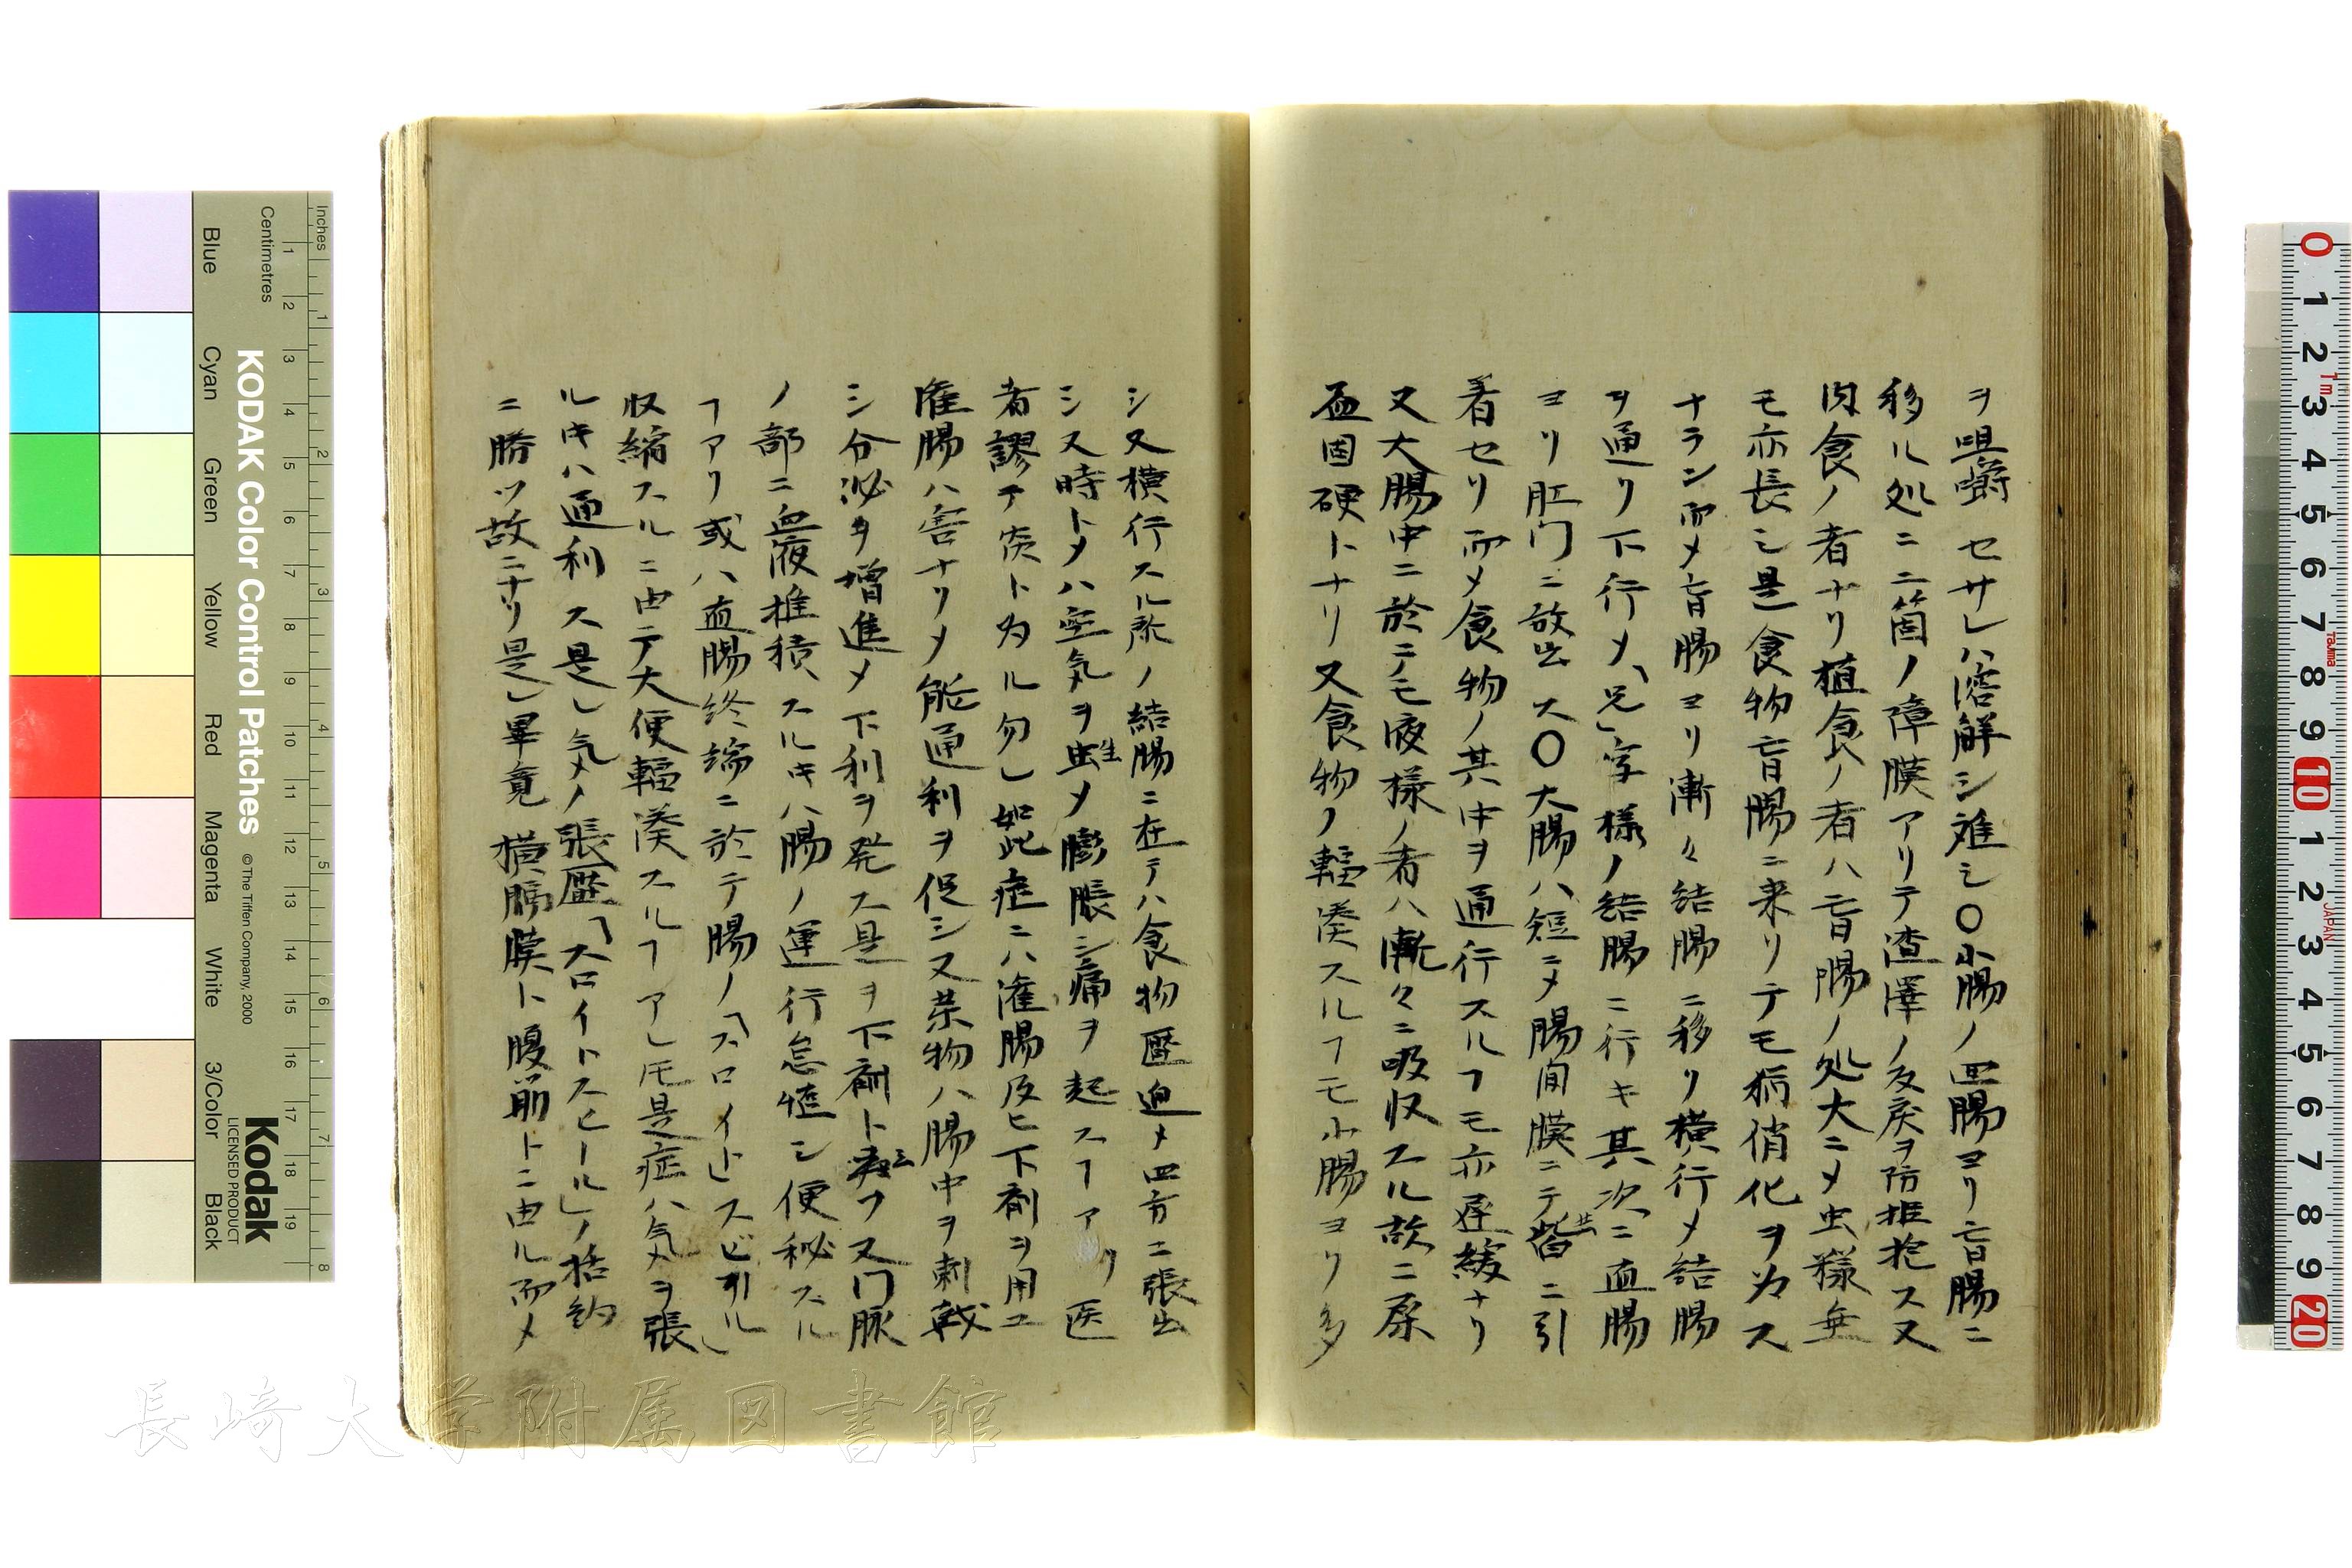 ヲ咀嚼セサレハ溶解シ难シ〇小腸ノ回腸ヨリ盲腸ニ
移ル処ニ二箇ノ障膜アリテ渣滓ノ反戻ヲ防拒スス又
肉食ノ者ナリ植食ノ者ハ盲腸ノ処大ニメ虫様垂
モ亦長シ是食物盲腸ニ来リテモ稍消化ヲ为ス
ナラン而メ盲腸ヨリ漸々結腸ニ移リ横行メ結腸
ヲ通リ下行メ「兄」字様ノ結腸ニ行キ其次ニ直腸
ヨリ肛门ニ放出ス〇大腸ハ短ニメ腸间膜ニテ皆ニ引
着セリ而メ食物ノ其中ヲ通行スルヿモ亦遅緩ナリ
又大腸中ニ於テモ液様ノ者ハ漸々ニ吸収スル故ニ屎
益固硬トナリ又食物ノ輻湊スルヿモ小腸ヨリ多
シ又横行スル所ノ結腸ニ在テハ食物壓迫メ四方ニ張出
シス時トメハ空気ヲ生メ膨脹シ痛ヲ起スヿアリ医
者謬テ痰ト为ル勿レ如此症ニハ潅腸及ヒ下剤ヲ用ユ
潅腸ハ害ナリメ能通利ヲ促シ又茶物ハ腸中ヲ刺戟
シ分泌ヲ增進メ下利ヲ発ス是ヲ下剤ト云フ又门脈
ノ部ニ血液推積スルキハ腸ノ運行怠惰シ便秘スル
ヿアリ或ハ直腸终端ニ於テ腸ノ「スロイトスピール」
収縮スルニ由テ大便輻湊スルヿアレ𪜈是症ハ気メヲ張
ルキハ通利ス是レ気メノ張壓「スロイトスヒール」ノ括約
ニ勝ツ故ニナリ是レ畢竟横膈膜ト腹筋トニ由ル而メ
KODAK Color Control Patches
© The Tiffen Company, 2000
Kodak
LICENSED PRODUCT
Inches
Centimetres
Blue
Cyan
Green
Yellow
Red
Magenta
White
3/Color
Black
長崎大学附属図書館